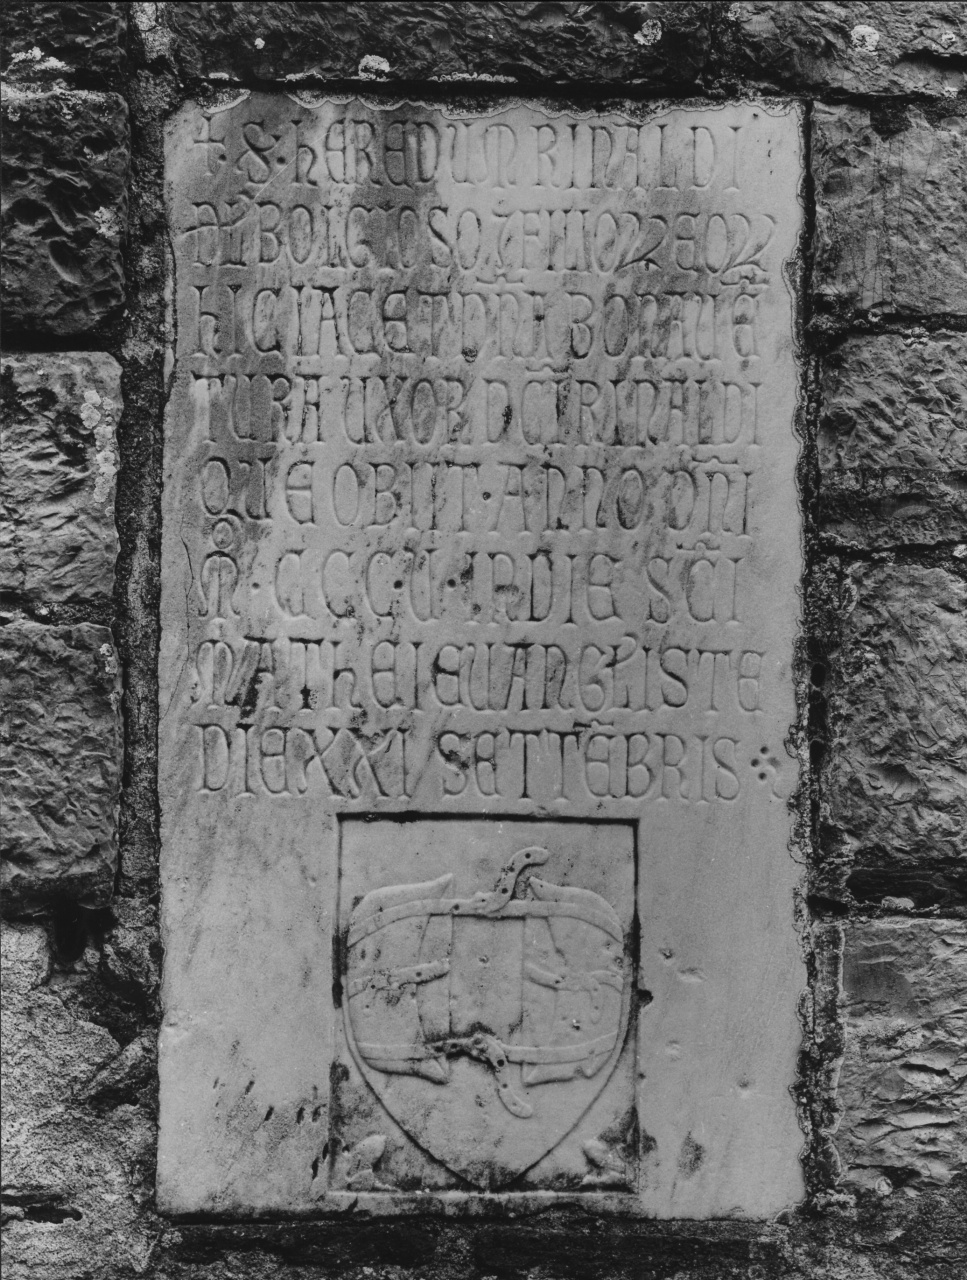 + S · HEREDUM RINALDI
D BOLGIO SOZ FILIOR EOR
HIC IACET DNA BONAVE
TURA UXOR DCI RINALDI
QUE OBIIT · ANNO DNI
M° · CCC · V · IN DIE SCI
MATHEI EVANGLISTE
DIE XXI SETTEBRIS